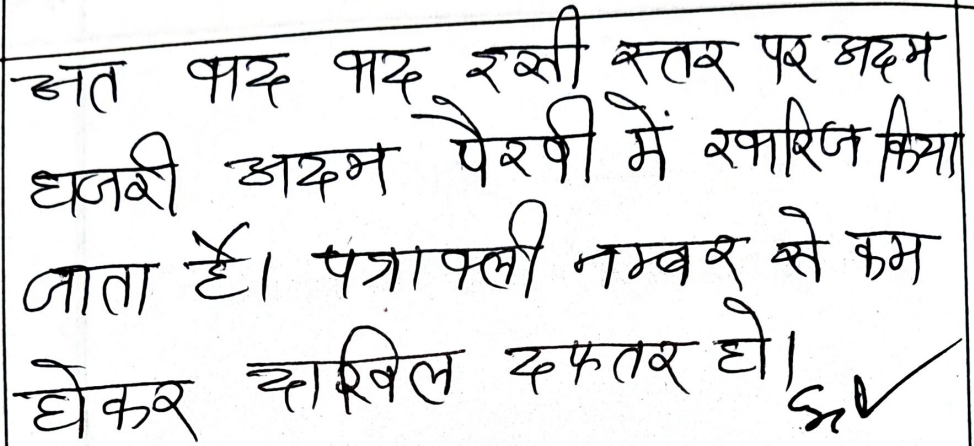 अत वाद वाद इसी स्तर पर अदम
हाजरी अदम पैरवी में खारिज किया
जाता है। पत्रावली नम्बर से कम
होकर दाखिल दफतर हो।